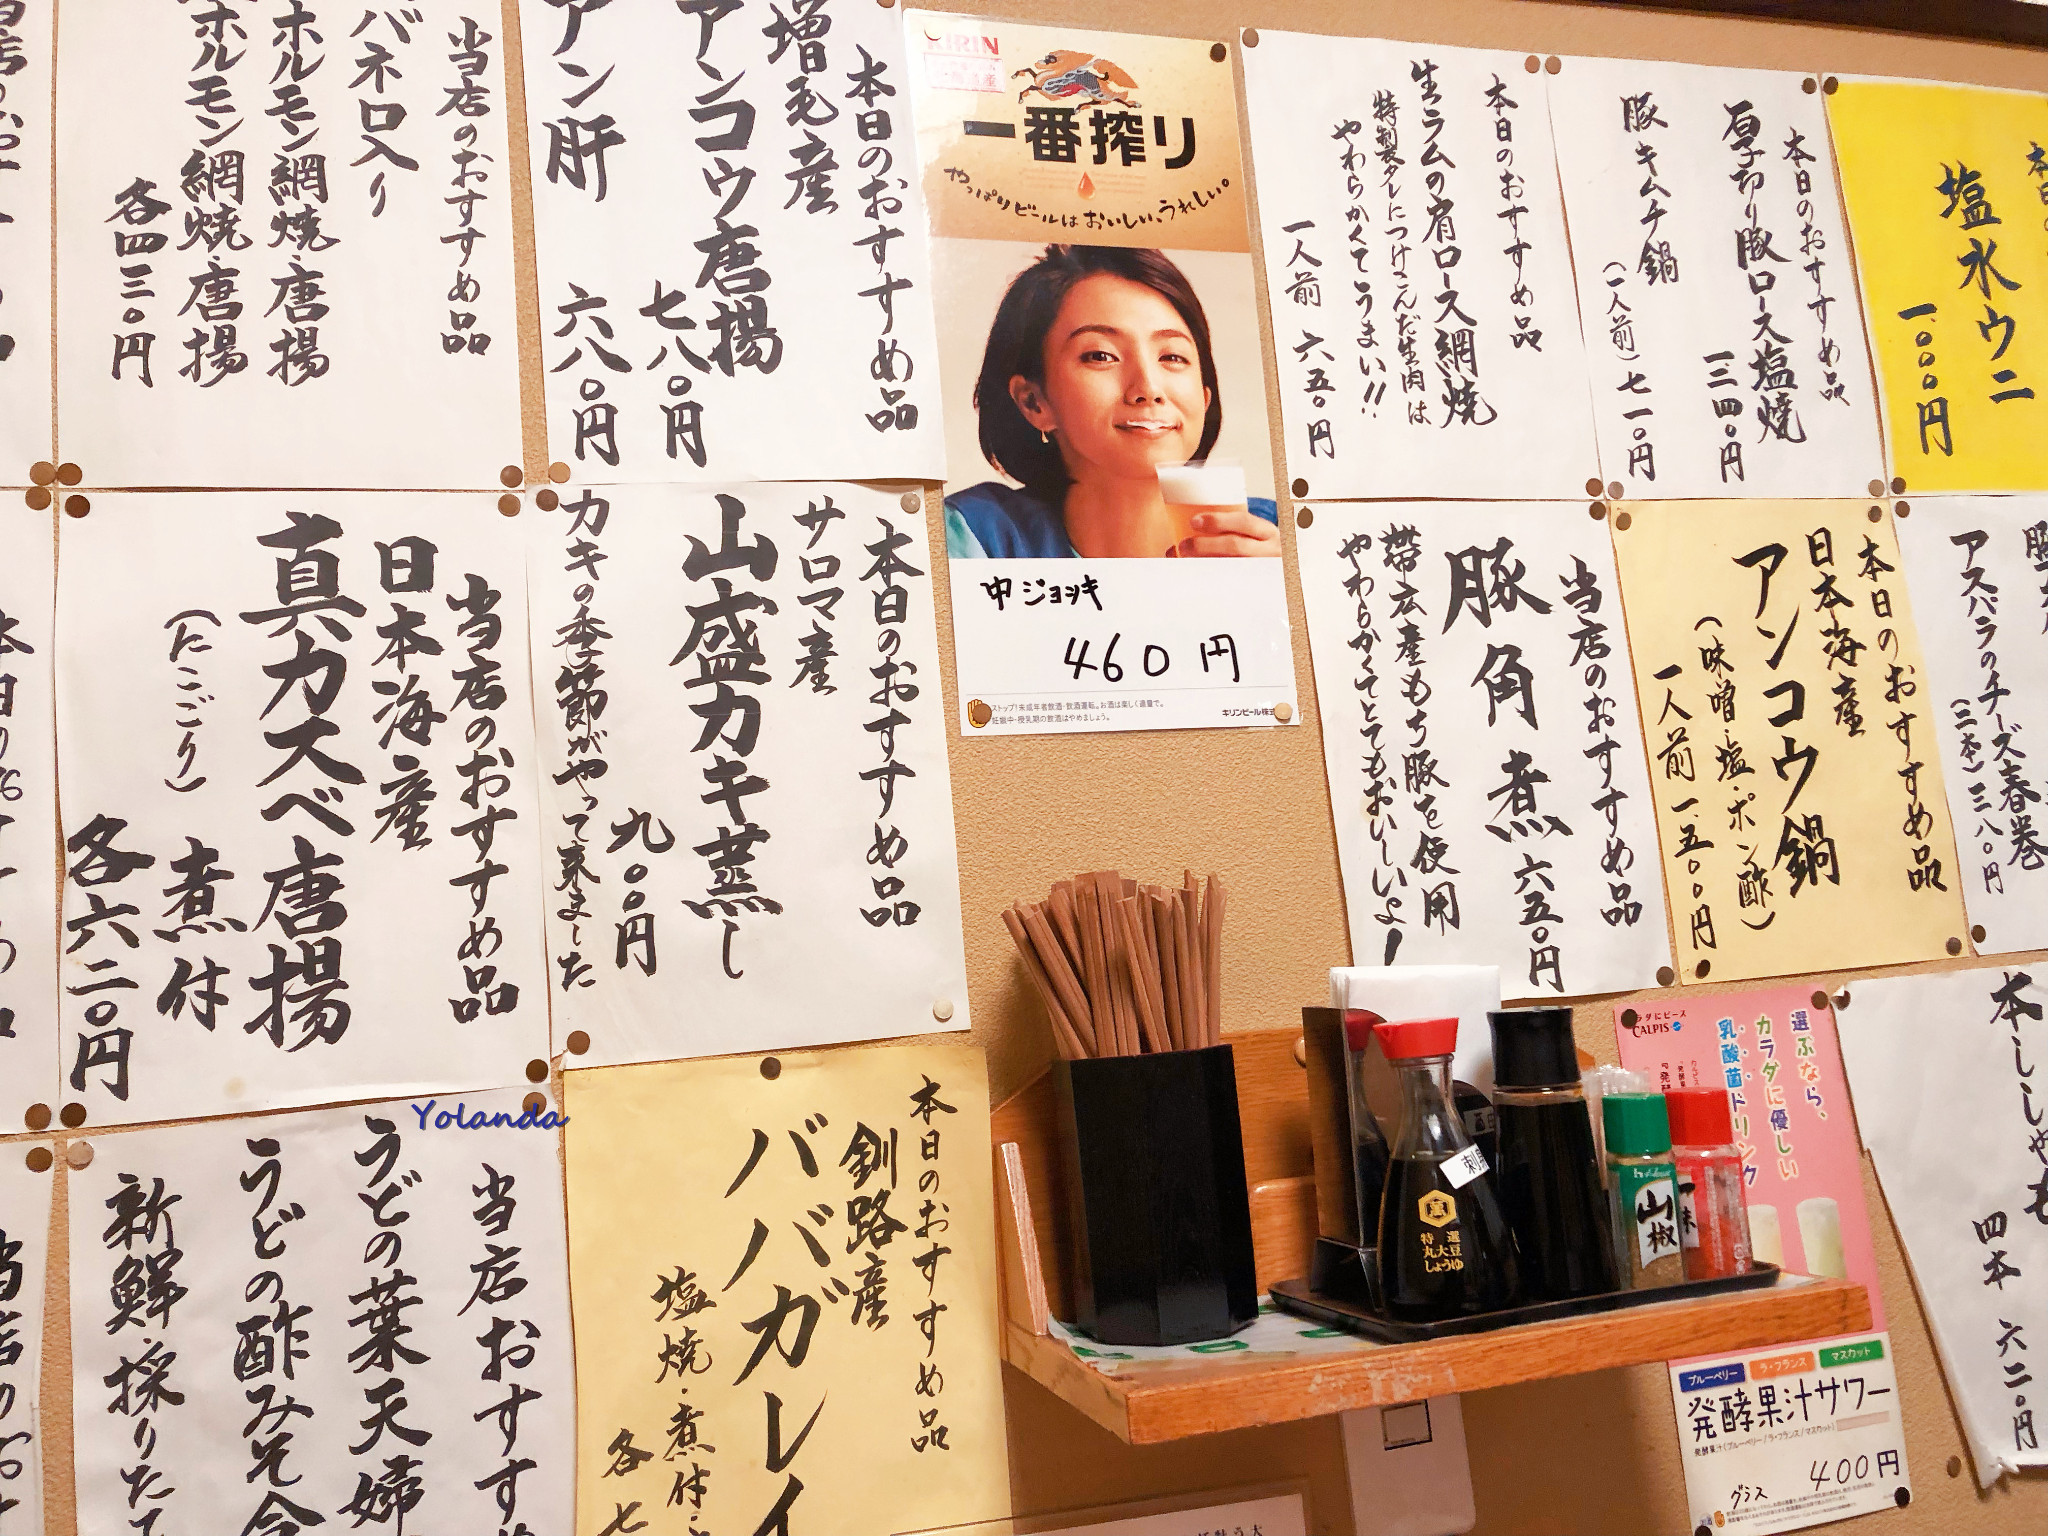 当店のおすすめ品
バネロ入り
ホルモン網焼・唐揚
ホルモン網焼・唐揚
各四三〇円
本日のおすすめ品
増毛産
アンコウ唐揚
七八〇円
アン肝
六八〇円
KIRIN
一番搾り
やっぱりビールはおいしい、うれしい。
中ジョッキ
460円
ストップ!未成年者飲酒・飲酒運転。お酒は楽しく適量で。
妊娠中・授乳期の飲酒はやめましょう。
キリンビール株式
本日のおすすめ品
生ラムの肩ロース網焼
特製タレにつけこんだ生肉は
やわらかくてうまい!!
一人前 六五〇円
本日のおすすめ品
厚切り豚ロース塩焼
一.三四〇円
豚キムチ鍋
(一人前)七一〇円
塩水ウニ
一.〇〇〇円
当店のおすすめ品
日本海産
真カスベ唐揚
煮付
(にこごり)
各六二〇円
本日のおすすめ品
サロマ産
山盛カキ蒸し
九〇〇円
カキの季節がやって来ました
当店のおすすめ品
豚角煮 六五〇円
帯広産もち豚を使用
やわらかくてとてもおいしいよ!
本日のおすすめ品
日本海産
アンコウ鍋
(味噌・塩・ポン酢)
一人前 一.五〇〇円
アスパラのチーズ春巻
(三本)三八〇円
当店おすす
うどの葉天婦
うどの酢みそ
新鮮・採りたて
Yolanda
本日のおすすめ品
釧路産
ババガレイ
塩焼・煮付
各七
本ししゃも
四本 六二〇円
カラダにピース
CALPIS
選ぶなら、
カラダに優しい
乳酸菌ドリンク
ブルーベリー
ラ・フランス
マスカット
発酵果汁サワー
発酵果汁(ブルーベリー/ラ・フランス/マスカット)
グラス
400円
特選
丸大豆
しょうゆ
山椒